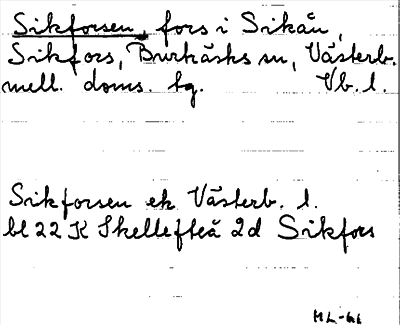 Sikforsen, fors i Sikån,
Sikfors, Burträsks sn, Västerb.
mell. doms. bg. Vb. l.
Sikforsen ek Västerb. l.
bl 22 K Skellefteå 2d Sikfors
ML-61